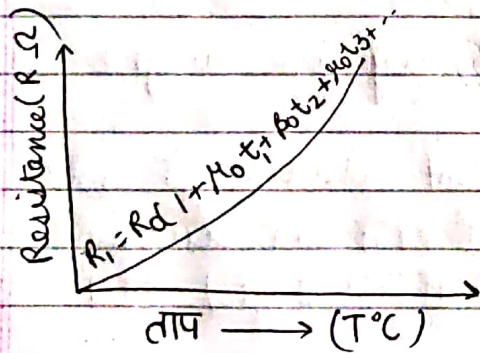 Resistance (R Ω)
R₁ = Rα 1 + μ₀t₁ + β₀t₂ + μ₀t3 + ...
ताप ⟶ (T°C)